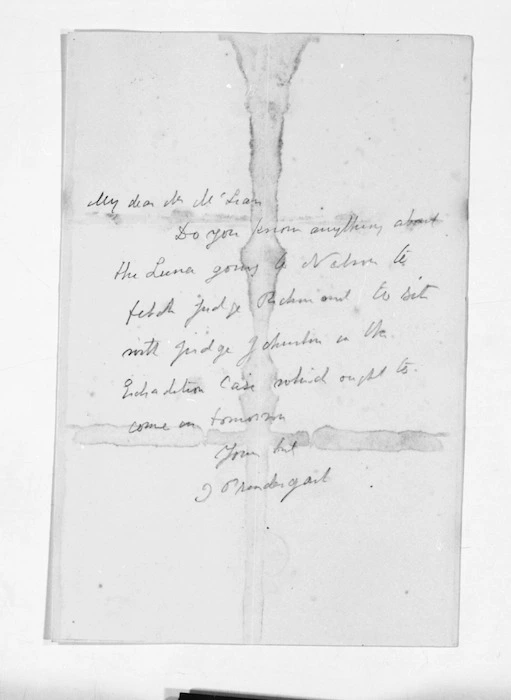 My dear Mr McLean
Do you know anything about
the Luna going to Nelson to
fetch Judge Richmond to sit
with Judge Johnston in the
Extradition Case which ought to
come on tomorrow
Yours
J Prendergast